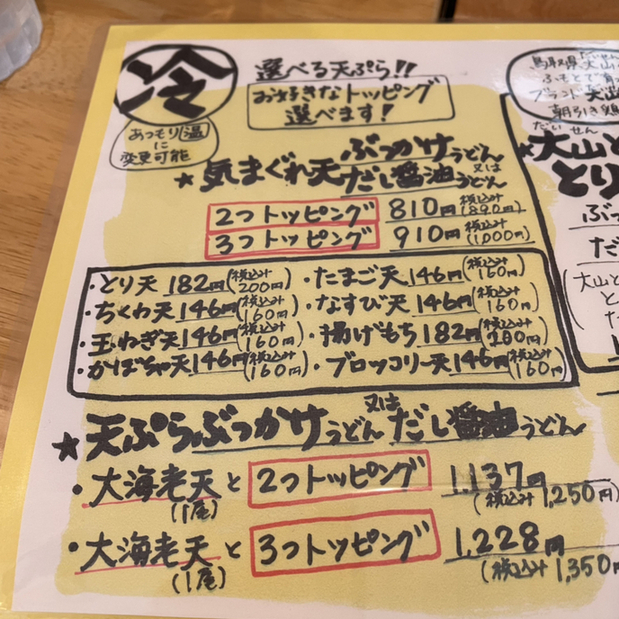 冷
あつもり(温)
に
変更可能
選べる天ぷら!!
お好きなトッピング
選べます!
★気まぐれ天ぶっかけうどん
又は
だし醤油うどん
2つトッピング 810円(税込み890円)
3つトッピング 910円(税込み1,000円)
・とり天 182円(税込み200円)
・たまご天 146円(税込み160円)
・ちくわ天 146円(税込み160円)
・なすび天 146円(税込み160円)
・玉ねぎ天 146円(税込み160円)
・揚げもち 182円(税込み200円)
・かぼちゃ天 146円(税込み160円)
・ブロッコリー天 146円(税込み160円)
★天ぷらぶっかけうどん又はだし醤油うどん
・大海老天と2つトッピング 1,137円
(1尾) (税込み1,250円)
・大海老天と3つトッピング 1,228円
(1尾) (税込み1,350円)
鳥取県大山
ふもとで
ブランド
朝引き鶏
だいせん
★大山
とり
ぶっ
だ
(大山と